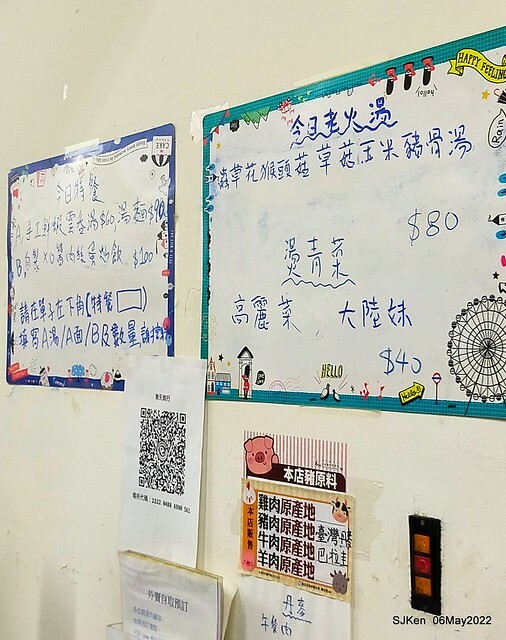 今日特餐
A. 手工鮮蝦雲吞湯$60, 湯麵$90
B. 自製XO醬肉絲蛋炒飯 $100
請在單子左下角(特餐□)
填寫A湯/A面/B及數量
今日老火湯
蟲草花猴頭菇草菇玉米豬骨湯
$80
燙青菜
高麗菜 大陸妹
$40
HAPPY FEELING
Rain
HELLO
場所代碼:2222 0488 6990 561
外賣自取預訂
本店豬原料
本店販售
雞肉原產地
豬肉原產地 臺灣 丹麥
牛肉原產地 巴拉圭
羊肉原產地
丹麥
午餐肉
SJKen 06May2022